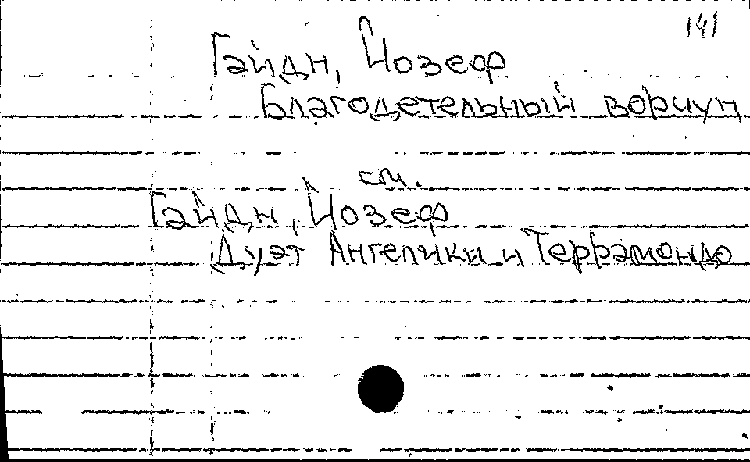 141
Гайдн, Йозеф
Благодетельный ворчун
см.
Гайдн, Йозеф
Дуэт Ангелики и Террамондо